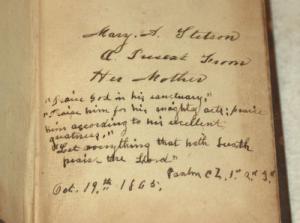 Mary. A. Stetson
A Present From
Her Mother
"Praise God in his sanctuary,"
"Praise him for his mighty acts; praise
him according to his excellent
greatness,"
"Let everything that hath breath
praise the Lord"
Psalm CL, 1st 2d
Oct. 19th 1865.